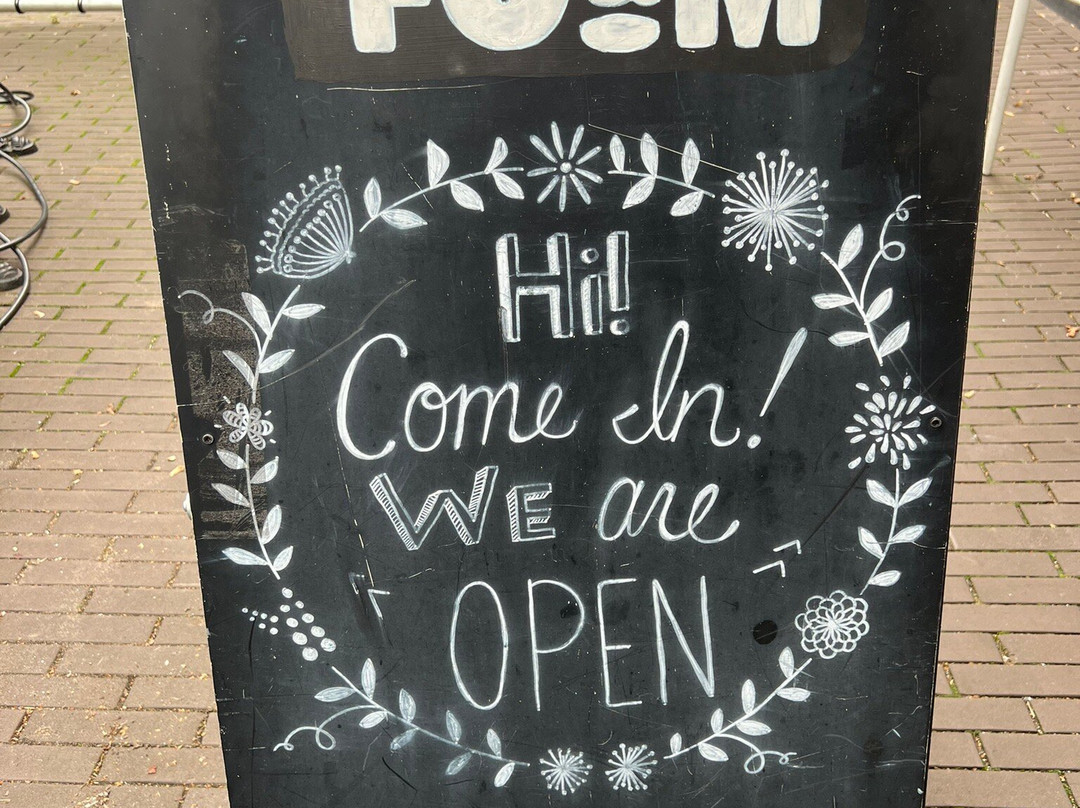 Hi!
Come In!
WE are
OPEN